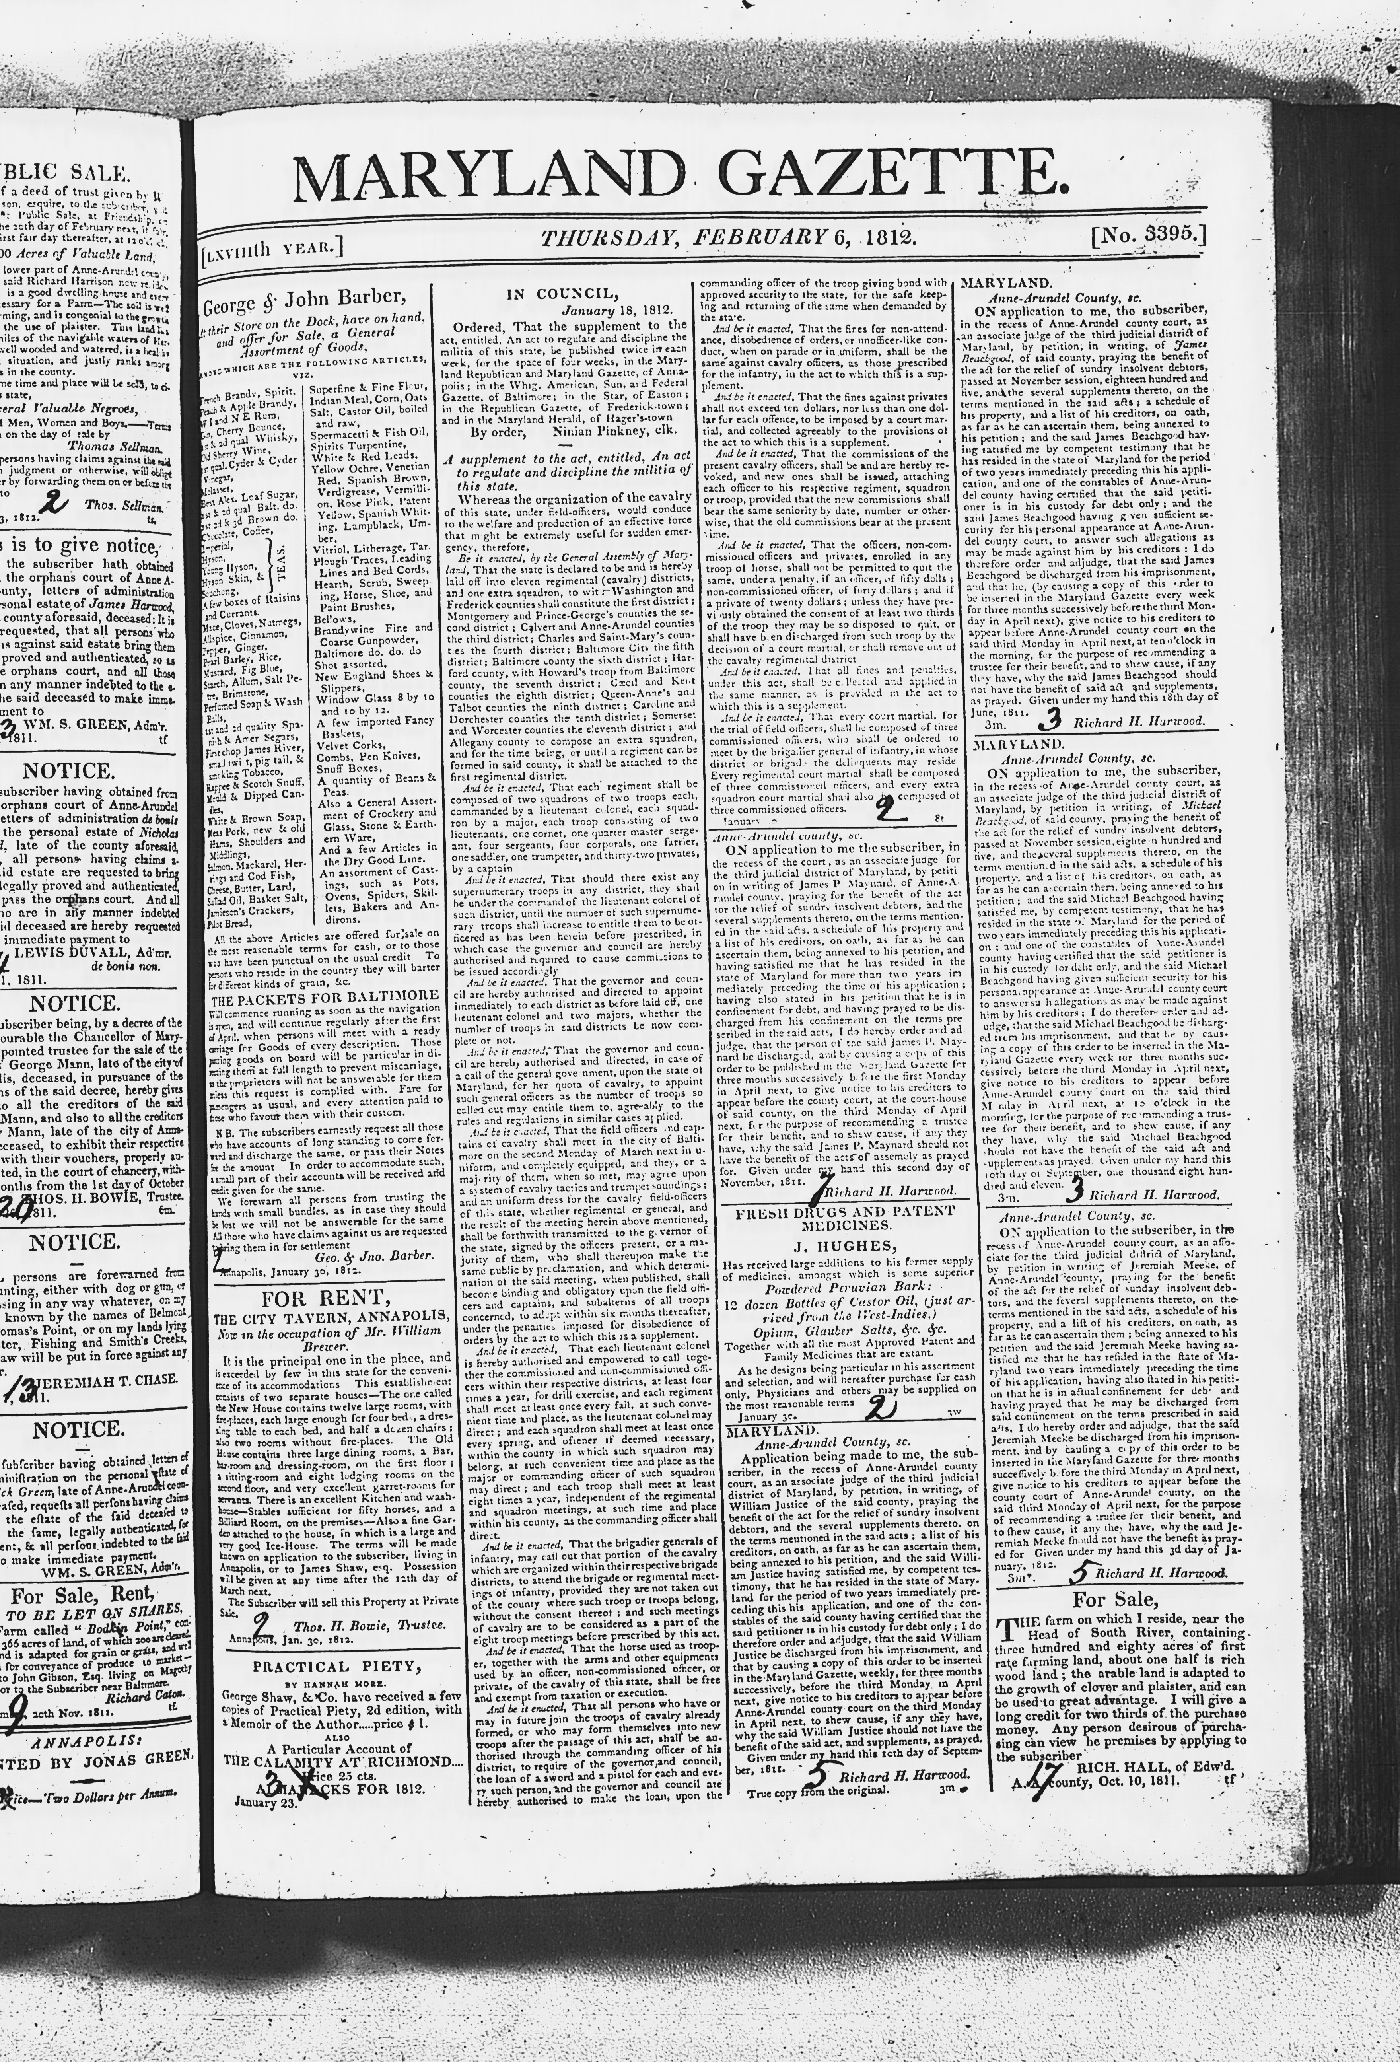 BLIC SALE.
f a deed of trust given by
son, esquire, to the subscriber,
Public Sale, at Friendship,
he 20th day of February next, if fair,
irst fair day thereafter, at 12 o'clock,
00 Acres of Valuable Land,
lower part of Anne-Arundel
said Richard Harrison now
is a good dwelling house and
cessary for a Farm—The soil is
rming, and is congenial to the
the use of plaister. This land
miles of the navigable waters of
well wooded and watered, is a
situation, and justly ranks among
s in the county.
me time and place will be sold,
s state,
eral Valuable Negroes,
Men, Women and Boys.—Terms
n on the day of sale by
Thomas Sellman.
persons having claims against the said
judgment or otherwise, will oblige
er by forwarding them on or before the
2 Thos. Sellman.
3, 1812. ts.
s is to give notice,
the subscriber hath obtained
the orphan's court of Anne A-
unty, letters of administration
rsonal estate of James Harwood,
county aforesaid, deceased: It is
requested, that all persons who
s against said estate bring them
proved and authenticated, so as
e orphans court, and all those
n any manner indebted to the e-
he said deceased to make imme-
ment to
3 WM. S. GREEN, Adm'r.
1811. tf
NOTICE.
subscriber having obtained from
orphans court of Anne-Arundel
etters of administration de bonis
the personal estate of Nicholas
late of the county aforesaid,
all persons having claims a-
id estate are requested to bring
legally proved and authenticated,
pass the orphans court. And all
ho are in any manner indebted
id deceased are hereby requested
immediate payment to
LEWIS DUVALL, Ad'mr.
de bonis non.
1, 1811.
NOTICE.
ubscriber being, by a decree of the
ourable the Chancellor of Mary-
pointed trustee for the sale of the
George Mann, late of the city of
lis, deceased, in pursuance of the
ns of the said decree, hereby gives
to all the creditors of the said
Mann, and also to all the creditors
Mann, late of the city of Anna-
eceased, to exhibit their respective
with their vouchers, properly au-
ted, in the court of chancery, with-
onths from the 1st day of October
THOS. H. BOWIE, Trustee.
1811. 6m.
NOTICE.
persons are forewarned from
unting, either with dog or gun, or
sing in any way whatever, on my
known by the names of Belmont,
omas's Point, or on my lands lying
ter, Fishing and Smith's Creeks,
aw will be put in force against any
13 JEREMIAH T. CHASE.
1811.
NOTICE.
subscriber having obtained letters of
ministration on the personal estate of
ick Green, late of Anne-Arundel coun-
eased, requests all persons having claims
the estate of the said deceased to
the same, legally authenticated, for
ent, & all persons indebted to the said
to make immediate payment.
WM. S. GREEN, Adm'r.
For Sale, Rent,
TO BE LET ON SHARES,
Farm called "Bodkin Point," con-
366 acres of land, of which 200 are cleared,
nd is adapted for grain or grass, and will
for conveyance of produce to market—
to John Gibson, Esq. living on Magothy
or to the Subscriber near Baltimore.
Richard Caton.
9 20th Nov. 1811. tf.
ANNAPOLIS:
NTED BY JONAS GREEN,
rice—Two Dollars per Annum.
MARYLAND GAZETTE.
[LXVIIIth YEAR.]
THURSDAY, FEBRUARY 6, 1812.
[No. 3395.]
George & John Barber,
their Store on the Dock, have on hand,
and offer for Sale, a General
Assortment of Goods,
AMONG WHICH ARE THE FOLLOWING ARTICLES,
VIZ.
French Brandy, Spirit,
Peach & Apple Brandy,
W I and N E Rum,
Gin, Cherry Bounce,
1st & 2d qual Whisky,
Old Sherry Wine,
qual. Cyder & Cyder
Vinegar,
Molasses,
Leaf Sugar,
1st & 2d qual. Balt. do.
1st 2d & 3d Brown do.
Chocolate, Coffee,
Imperial,
Hyson,
Young Hyson,
Hyson Skin, &
Souchong,
TEAS.
A few boxes of Raisins
and Currants.
Mace, Cloves, Nutmegs,
Allspice, Cinnamon,
Pepper, Ginger.
Pearl Barley, Rice,
Mustard, Fig Blue,
Starch, Allum, Salt Pe-
tre, Brimstone,
Perfumed Soap & Wash
Balls,
1st and 2d quality Spa-
nish & Amer Segars,
Fine chop James River,
small twist, pig tail, &
smoking Tobacco,
Rappee & Scotch Snuff,
Mould & Dipped Can-
dles,
White & Brown Soap,
Ness Pork, new & old
Hams, Shoulders and
Middlings,
Salmon, Mackarel, Her-
rings and Cod Fish,
Cheese, Butter, Lard,
Salad Oil, Basket Salt,
Jamieson's Crackers,
Pilot Bread,
Superfine & Fine Flour,
Indian Meal, Corn, Oats
Salt, Castor Oil, boiled
and raw,
Spermaceti & Fish Oil,
Spirits Turpentine,
White & Red Leads,
Yellow Ochre, Venetian
Red, Spanish Brown,
Verdigrease, Vermilli-
on, Rose Pink, Patent
Yellow, Spanish Whit-
ing, Lampblack, Um-
ber,
Vitriol, Litherage, Tar.
Plough Traces, Leading
Lines and Bed Cords,
Hearth, Scrub, Sweep
ing, Horse, Shoe, and
Paint Brushes,
Bellows,
Brandywine Fine and
Coarse Gunpowder,
Baltimore do. do. do
Shot assorted,
New England Shoes &
Slippers,
Window Glass 8 by 10
and 10 by 12.
A few imported Fancy
Baskets,
Velvet Corks,
Combs, Pen Knives,
Snuff Boxes,
A quantity of Beans &
Peas.
Also a General Assort-
ment of Crockery and
Glass, Stone & Earth-
ern Ware,
And a few Articles in
the Dry Good Line.
An assortment of Cast-
ings, such as Pots,
Ovens, Spiders, Skil-
lets, Bakers and An-
dirons.
All the above Articles are offered for sale on
the most reasonable terms for cash, or to those
who have been punctual on the usual credit To
persons who reside in the country they will barter
for different kinds of grain, &c.
THE PACKETS FOR BALTIMORE
Will commence running as soon as the navigation
is open, and will continue regularly after the first
of April, when persons will meet with a ready
carriage for Goods of every description. Those
putting goods on board will be particular in di-
recting them at full length to prevent miscarriage,
as the proprietors will not be answerable for them
unless this request is complied with. Fare for
passengers as usual, and every attention paid to
those who favour them with their custom.
N B. The subscribers earnestly request all those
who have accounts of long standing to come for-
ward and discharge the same, or pass their Notes
for the amount In order to accommodate such,
small part of their accounts will be received and
credit given for the same.
We forewarn all persons from trusting the
hands with small bundles, as in case they should
be lost we will not be answerable for the same
All those who have claims against us are requested
to bring them in for settlement
Geo. & Jno. Barber.
2 Annapolis, January 30, 1812.
FOR RENT,
THE CITY TAVERN, ANNAPOLIS,
Now in the occupation of Mr. William
Brewer.
It is the principal one in the place, and
is exceeded by few in this state for the conveni-
ence of its accommodations This establishment
consists of two separate houses—The one called
the New House contains twelve large rooms, with
fire-places, each large enough for four beds, a dres-
sing table to each bed, and half a dozen chairs;
also two rooms without fire-places. The Old
House contains three large dining rooms, a Bar,
bar-room and dressing-room, on the first floor;
a sitting-room and eight lodging rooms on the
second floor, and very excellent garret-rooms for
servants. There is an excellent Kitchen and wash-
house—Stables sufficient for fifty horses, and a
Billiard Room, on the premises—Also a fine Gar-
den attached to the house, in which is a large and
very good Ice-House. The terms will be made
known on application to the subscriber, living in
Annapolis, or to James Shaw, esq. Possession
will be given at any time after the 12th day of
March next.
The Subscriber will sell this Property at Private
Sale.
2 Thos. H. Bowie, Trustee.
Annapolis, Jan. 30, 1812.
PRACTICAL PIETY,
BY HANNAH MORE.
George Shaw, & Co. have received a few
copies of Practical Piety, 2d edition, with
a Memoir of the Author.....price $1.
ALSO
A Particular Account of
THE CALAMITY AT RICHMOND....
Price 25 cts.
ALMANACKS FOR 1812.
January 23. 3
IN COUNCIL,
January 18, 1812.
Ordered, That the supplement to the
act, entitled, An act to regulate and discipline the
militia of this state, be published twice in each
week, for the space of four weeks, in the Mary-
land Republican and Maryland Gazette, of Anna-
polis; in the Whig, American, Sun, and Federal
Gazette, of Baltimore; in the Star, of Easton;
in the Republican Gazette, of Frederick-town;
and in the Maryland Herald, of Hager's-town
By order, Ninian Pinkney, clk.
A supplement to the act, entitled, An act
to regulate and discipline the militia of
this state.
Whereas the organization of the cavalry
of this state, under field-officers, would conduce
to the welfare and production of an effective force
that might be extremely useful for sudden emer-
gency, therefore,
Be it enacted, by the General Assembly of Mary-
land, That the state is declared to be and is hereby
laid off into eleven regimental (cavalry) districts,
and one extra squadron, to wit—Washington and
Frederick counties shall constitute the first district;
Montgomery and Prince-George's counties the se-
cond district; Calvert and Anne-Arundel counties
the third district; Charles and Saint-Mary's coun-
ties the fourth district; Baltimore City the fifth
district; Baltimore county the sixth district; Har-
ford county, with Howard's troop from Baltimore
county, the seventh district; Cæcil and Kent
counties the eighth district; Queen-Anne's and
Talbot counties the ninth district; Caroline and
Dorchester counties the tenth district; Somerset
and Worcester counties the eleventh district; and
Allegany county to compose an extra squadron,
and for the time being, or until a regiment can be
formed in said county, it shall be attached to the
first regimental district.
And be it enacted, That each regiment shall be
composed of two squadrons of two troops each,
commanded by a lieutenant colonel, each squad-
ron by a major, each troop consisting of two
lieutenants, one cornet, one quarter master serge-
ant, four sergeants, four corporals, one farrier,
one saddler, one trumpeter, and thirty-two privates,
by a captain
And be it enacted, That should there exist any
supernumerary troops in any district, they shall
be under the command of the lieutenant colonel of
such district, until the number of such supernume-
rary troops shall increase to entitle them to be of-
ficered as has been herein before prescribed, in
which case the governor and council are hereby
authorised and required to cause commissions to
be issued accordingly
And be it enacted, That the governor and coun-
cil are hereby authorised and directed to appoint
immediately to each district as before laid off, one
lieutenant colonel and two majors, whether the
number of troops in said districts be now com-
plete or not.
And be it enacted, That the governor and coun-
cil are hereby authorised and directed, in case of
a call of the general government, upon the state of
Maryland, for her quota of cavalry, to appoint
such general officers as the number of troops so
called out may entitle them to, agreeably to the
rules and regulations in similar cases applied.
And be it enacted, That the field officers and cap-
tains of cavalry shall meet in the city of Balti-
more on the second Monday of March next in u-
niform, and completely equipped, and they, or a
majority of them, when so met, may agree upon
a system of cavalry tactics and trumpet soundings;
and an uniform dress for the cavalry field-officers
of this state, whether regimental or general, and
the result of the meeting herein above mentioned,
shall be forthwith transmitted to the governor of
the state, signed by the officers present, or a ma-
jority of them, who shall thereupon make the
same public by proclamation, and which determi-
nation of the said meeting, when published, shall
become binding and obligatory upon the field offi-
cers and captains, and subalterns of all troops
concerned, to adopt within six months thereafter,
under the penalties imposed for disobedience of
orders by the act to which this is a supplement.
And be it enacted, That each lieutenant colonel
is hereby authorised and empowered to call toge-
ther the commissioned and non-commissioned offi-
cers within their respective districts, at least four
times a year, for drill exercise, and each regiment
shall meet at least once every fall, at such conve-
nient time and place, as the lieutenant colonel may
direct; and each squadron shall meet at least once
every spring, and oftener if deemed necessary,
within the county in which such squadron may
belong, at such convenient time and place as the
major or commanding officer of such squadron
may direct; and each troop shall meet at least
eight times a year, independent of the regimental
and squadron meetings, at such time and place
within his county, as the commanding officer shall
direct.
And be it enacted, That the brigadier generals of
infantry, may call out that portion of the cavalry
which are organized within their respective brigade
districts, to attend the brigade or regimental meet-
ings of infantry, provided they are not taken out
of the county where such troop or troops belong,
without the consent thereof; and such meetings
of cavalry are to be considered as a part of the
eight troop meetings before prescribed by this act.
And be it enacted, That the horse used as troop-
er, together with the arms and other equipments
used by an officer, non-commissioned officer, or
private, of the cavalry of this state, shall be free
and exempt from taxation or execution.
And be it enacted, That all persons who have or
may in future join the troops of cavalry already
formed, or who may form themselves into new
troops after the passage of this act, shall be au-
thorised through the commanding officer of his
district, to require of the governor and council,
the loan of a sword and a pistol for each and eve-
ry such person, and the governor and council are
hereby authorised to make the loan, upon the
commanding officer of the troop giving bond with
approved security to the state, for the safe keep-
ing and returning of the same when demanded by
the state.
And be it enacted, That the fines for non-attend-
ance, disobedience of orders, or unofficer-like con-
duct, when on parade or in uniform, shall be the
same against cavalry officers, as those prescribed
for the infantry, in the act to which this is a sup-
plement.
And be it enacted, That the fines against privates
shall not exceed ten dollars, nor less than one dol-
lar for each offence, to be imposed by a court mar-
tial, and collected agreeably to the provisions of
the act to which this is a supplement.
And be it enacted, That the commissions of the
present cavalry officers, shall be and are hereby re-
voked, and new ones shall be issued, attaching
each officer to his respective regiment, squadron
or troop, provided that the new commissions shall
bear the same seniority by date, number or other-
wise, that the old commissions bear at the present
time.
And be it enacted, That the officers, non-com-
missioned officers and privates, enrolled in any
troop of horse, shall not be permitted to quit the
same, under a penalty, if an officer, of fifty dollars;
non-commissioned officer, of forty dollars; and if
a private of twenty dollars; unless they have pre-
viously obtained the consent of at least two thirds
of the troop they may be so disposed to quit, or
shall have been discharged from such troop by the
decision of a court martial, or shall remove out of
the cavalry regimental district
And be it enacted, That all fines and penalties,
under this act, shall be collected and applied in
the same manner, as is provided in the act to
which this is a supplement.
And be it enacted, That every court martial, for
the trial of field officers, shall be composed of three
commissioned officers, who shall be ordered to
meet by the brigadier general of infantry, in whose
district or brigade the delinquents may reside
Every regimental court martial shall be composed
of three commissioned officers, and every extra
squadron court martial shall also be composed of
three commissioned officers.
January 2 8t
Anne-Arundel county, sc.
ON application to me the subscriber, in
the recess of the court, as an associate judge for
the third judicial district of Maryland, by petiti
on in writing of James P Maynard, of Anne-A-
rundel county, praying for the benefit of the act
for the relief of sundry insolvent debtors, and the
several supplements thereto, on the terms mention-
ed in the said acts, a schedule of his property and
a list of his creditors, on oath, as far as he can
ascertain them, being annexed to his petition, and
having satisfied me that he has resided in the
state of Maryland for more than two years im
mediately preceding the time of his application;
having also stated in his petition that he is in
confinement for debt, and having prayed to be dis-
charged from his confinement on the terms pre-
scribed in the said acts, I do hereby order and ad
judge, that the person of the said James P. May-
nard be discharged, and by causing a copy of this
order to be published in the Maryland Gazette for
three months successively before the first Monday
in April next, to give notice to his creditors to
appear before the county court, at the courthouse
of said county, on the third Monday of April
next, for the purpose of recommending a trustee
for their benefit, and to shew cause, if any they
have, why the said James P. Maynard should not
have the benefit of the acts of assembly as prayed
for. Given under my hand this second day of
November, 1811.
7 Richard H. Harwood.
FRESH DRUGS AND PATENT
MEDICINES.
J. HUGHES,
Has received large additions to his former supply
of medicines, amongst which is some superior
Powdered Peruvian Bark;
12 dozen Bottles of Castor Oil, (just ar-
rived from the West-Indies.)
Opium, Glauber Salts, &c. &c.
Together with all the most Approved Patent and
Family Medicines that are extant.
As he designs being particular in his assortment
and selection, and will hereafter purchase for cash
only, Physicians and others may be supplied on
the most reasonable terms
January 30. 2 3w
MARYLAND.
Anne-Arundel County, sc.
Application being made to me, the sub-
scriber, in the recess of Anne-Arundel county
court, as an associate judge of the third judicial
district of Maryland, by petition, in writing, of
William Justice of the said county, praying the
benefit of the act for the relief of sundry insolvent
debtors, and the several supplements thereto, on
the terms mentioned in the said acts; a list of his
creditors, on oath, as far as he can ascertain them,
being annexed to his petition, and the said Willi-
am Justice having satisfied me, by competent tes-
timony, that he has resided in the state of Mary-
land for the period of two years immediately pre-
ceding this his application, and one of the con-
stables of the said county having certified that the
said petitioner is in his custody for debt only; I do
therefore order and adjudge, that the said William
Justice be discharged from his imprisonment, and
that by causing a copy of this order to be inserted
in the Maryland Gazette, weekly, for three months
successively, before the third Monday in April
next, give notice to his creditors to appear before
Anne-Arundel county court on the third Monday
in April next, to shew cause, if any they have,
why the said William Justice should not have the
benefit of the said act, and supplements, as prayed.
Given under my hand this 10th day of Septem-
ber, 1811.
5 Richard H. Harwood.
True copy from the original. 3m
MARYLAND.
Anne-Arundel County, sc.
ON application to me, the subscriber,
in the recess of Anne-Arundel county court, as
an associate judge of the third judicial district of
Maryland, by petition, in writing, of James
Beachgood, of said county, praying the benefit of
the act for the relief of sundry insolvent debtors,
passed at November session, eighteen hundred and
five, and the several supplements thereto, on the
terms mentioned in the said acts; a schedule of
his property, and a list of his creditors, on oath,
as far as he can ascertain them, being annexed to
his petition; and the said James Beachgood hav-
ing satisfied me by competent testimony that he
has resided in the state of Maryland for the period
of two years immediately preceding this his appli-
cation, and one of the constables of Anne-Arun-
del county having certified that the said petiti-
oner is in his custody for debt only; and the
said James Beachgood having given sufficient se-
curity for his personal appearance at Anne-Arun-
del county court, to answer such allegations as
may be made against him by his creditors: I do
therefore order and adjudge, that the said James
Beachgood be discharged from his imprisonment,
and that he, (by causing a copy of this order to
be inserted in the Maryland Gazette every week
for three months successively before the third Mon-
day in April next), give notice to his creditors to
appear before Anne-Arundel county court on the
said third Monday in April next, at ten o'clock in
the morning, for the purpose of recommending a
trustee for their benefit, and to shew cause, if any
they have, why the said James Beachgood should
not have the benefit of the said act and supplements,
as prayed. Given under my hand this 18th day of
June, 1811.
3m. 3 Richard H. Harwood.
MARYLAND.
Anne-Arundel County, sc.
ON application to me, the subscriber,
in the recess of Anne-Arundel county court, as
an associate judge of the third judicial district of
Maryland, by petition in writing, of Michael
Beachgood, of said county, praying the benefit of
the act for the relief of sundry insolvent debtors,
passed at November session, eighteen hundred and
five, and the several supplements thereto, on the
terms mentioned in the said acts, a schedule of his
property, and a list of his creditors, on oath, as
far as he can ascertain them, being annexed to his
petition; and the said Michael Beachgood having
satisfied me, by competent testimony, that he has
resided in the state of Maryland for the period of
two years immediately preceding this his applicati-
on; and one of the constables of Anne-Arundel
county having certified that the said petitioner is
in his custody for debt only, and the said Michael
Beachgood having given sufficient security for his
personal appearance at Anne-Arundel county court
to answer such allegations as may be made against
him by his creditors: I do therefore order and ad-
judge, that the said Michael Beachgood be discharg-
ed from his imprisonment, and that he by caus-
ing a copy of this order to be inserted in the Ma-
ryland Gazette every week for three months suc-
cessively, before the third Monday in April next,
give notice to his creditors to appear before
Anne-Arundel county court on the said third
Monday in April next, at 10 o'clock in the
morning, for the purpose of recommending a trus-
tee for their benefit, and to shew cause, if any
they have, why the said Michael Beachgood
should not have the benefit of the said act and
supplements as prayed. Given under my hand this
10th day of September, one thousand eight hun-
dred and eleven.
3m. 3 Richard H. Harwood.
Anne-Arundel County, sc.
ON application to the subscriber, in the
recess of Anne-Arundel county court, as an asso-
ciate for the third judicial district of Maryland,
by petition in writing of Jeremiah Meeke, of
Anne-Arundel county, praying for the benefit
of the act for the relief of sundry insolvent deb-
tors, and the several supplements thereto, on the
terms mentioned in the said acts, a schedule of his
property, and a list of his creditors, on oath, as
far as he can ascertain them; being annexed to his
petition and the said Jeremiah Meeke having sa-
tisfied me that he has resided in the state of Ma-
ryland two years immediately preceding the time
of his application, having also stated in his petiti-
on that he is in actual confinement for debt and
having prayed that he may be discharged from
said confinement on the terms prescribed in said
acts, I do hereby order and adjudge, that the said
Jeremiah Meeke be discharged from his imprison-
ment, and by causing a copy of this order to be
inserted in the Maryland Gazette for three months
successively before the third Monday in April next,
give notice to his creditors to appear before the
county court of Anne-Arundel county, on the
said third Monday of April next, for the purpose
of recommending a trustee for their benefit, and
to shew cause, if any they have, why the said Je-
remiah Meeke should not have the benefit as pray-
ed for Given under my hand this 3d day of Ja-
nuary, 1812.
3m*. 5 Richard H. Harwood.
For Sale,
THE farm on which I reside, near the
Head of South River, containing
three hundred and eighty acres of first
rate farming land, about one half is rich
wood land; the arable land is adapted to
the growth of clover and plaister, and can
be used to great advantage. I will give a
long credit for two thirds of the purchase
money. Any person desirous of purcha-
sing can view the premises by applying to
the subscriber
RICH. HALL, of Edw'd.
A. A. county, Oct. 10, 1811. 17 tf